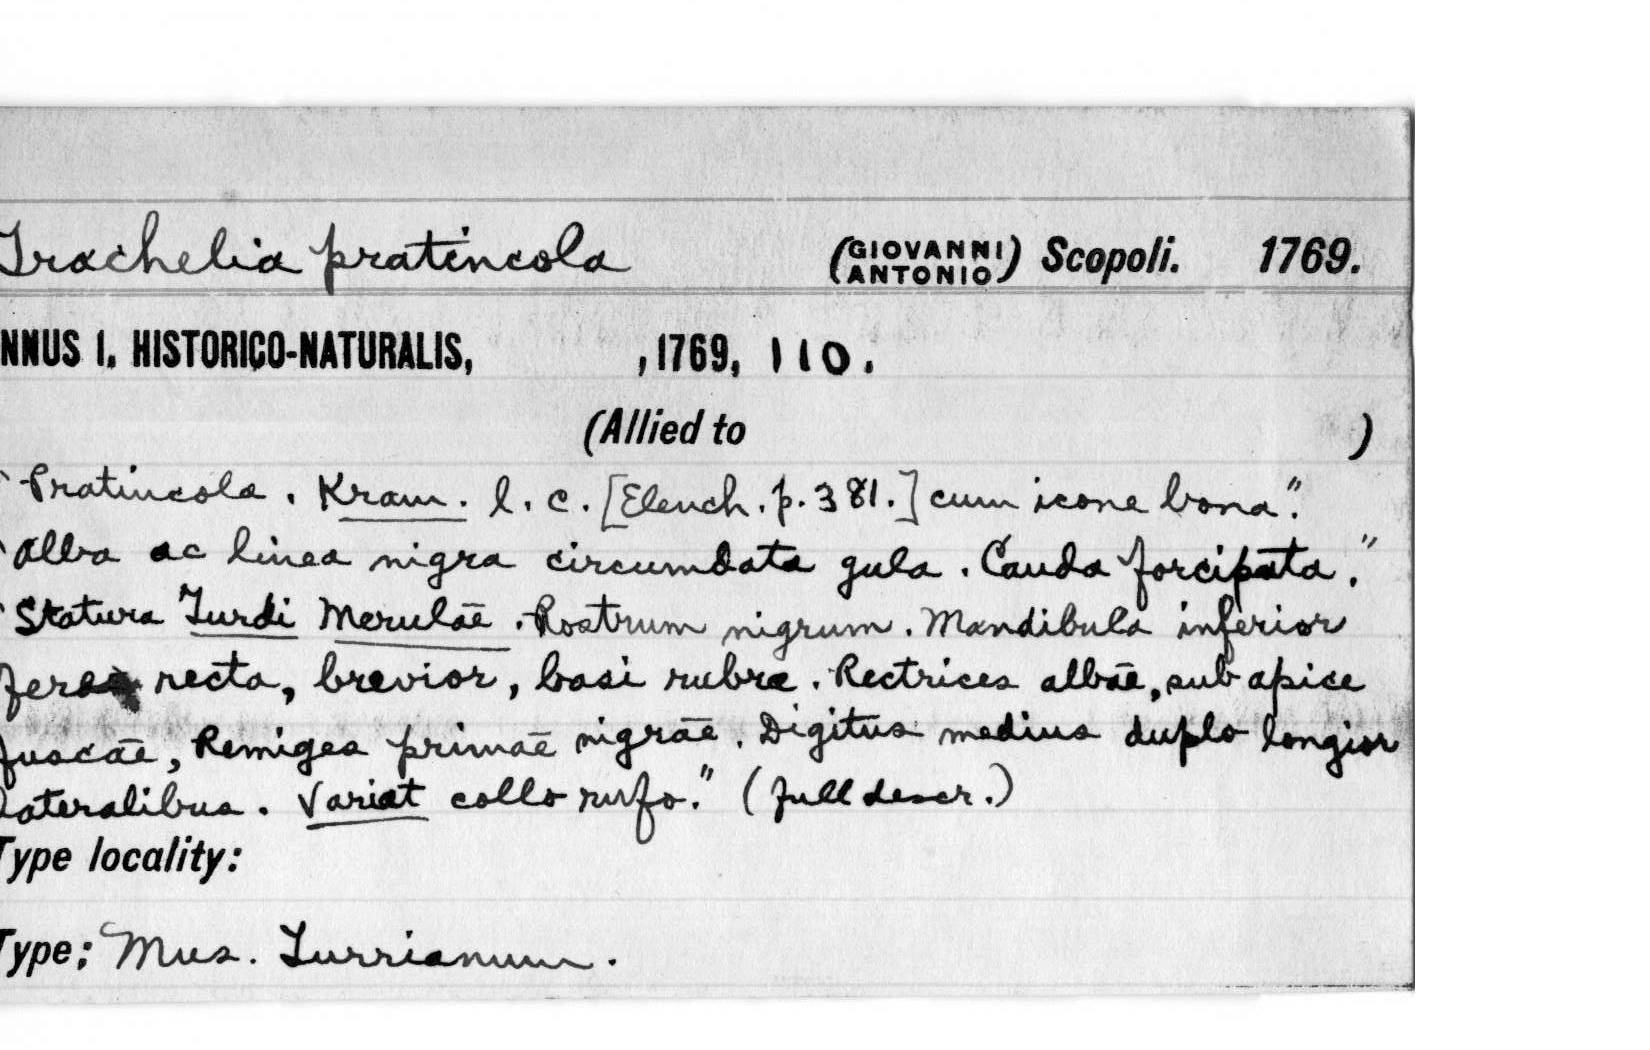 Trachelia pratincola (GIOVANNI ANTONIO) Scopoli. 1769.
NNUS I. HISTORICO-NATURALIS, , 1769, 110.
(Allied to )
"Pratincola. Kram. l. c. [Elench. p. 381.] cum icone bona."
"Alba ac linea nigra circumdata gula. Cauda forcipata."
"Statura Turdi Merulae. Rostrum nigrum. Mandibula inferior
fere recta, brevior, basi rubra. Rectrices albae, sub apice
fuscae, Remiges primae nigrae. Digitus medius duplo longior
lateralibus. Variat collo rufo." (full descr.)
Type locality:
Type: Mus. Turrianum.